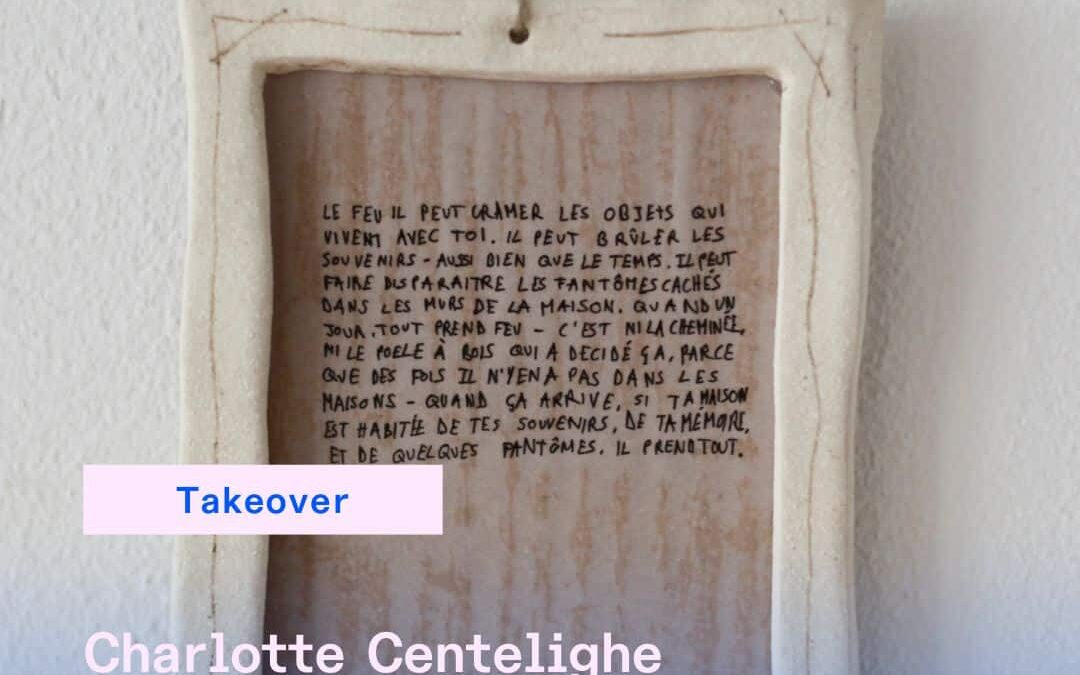 LE FEU IL PEUT CRÂMER LES OBJETS QUI
VIVENT AVEC TOI. IL PEUT BRÛLER LES
SOUVENIRS - AUSSI BIEN QUE LE TEMPS. IL PEUT
FAIRE DISPARAITRE LES FANTÔMES CACHÉS
DANS LES MURS DE LA MAISON. QUAND UN
JOUR, TOUT PREND FEU - C'EST NI LA CHEMINÉE,
NI LE POELE À BOIS QUI A DECIDÉ ÇA, PARCE
QUE DES FOIS IL N'Y EN A PAS DANS LES
MAISONS - QUAND ÇA ARRIVE, SI TA MAISON
EST HABITÉE DE TES SOUVENIRS, DE TA MÉMOIRE,
ET DE QUELQUES FANTÔMES. IL PREND TOUT.
Takeover
Charlotte Centelighe